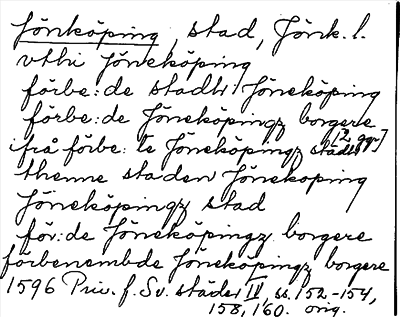 Jönköping, stad, Jönk. l.
vthi Jöneköping
förbe:de stadh Jöneköping
förbe:de Jöneköpingz borgere
[2 ggr]
ifrå förbe:te Jöneköpingz stadh
thenne staden Jöneköping
Jöneköpingz stad
för:de Jöneköpingz borgere
förbenembde Jöneköpingz borgere
1596 Priv. f. Sv. städer IV, ss. 152-154,
158, 160. orig.